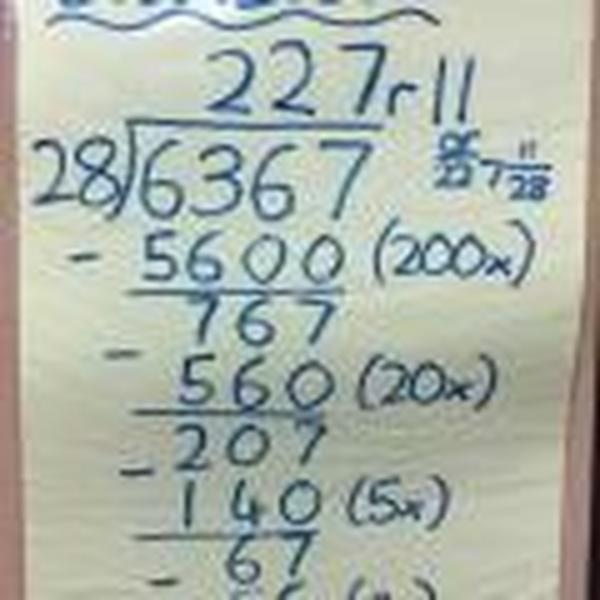 227r11
28)6367 or 227 11/28
- 5600 (200x)
767
- 560 (20x)
207
- 140 (5x)
67
-